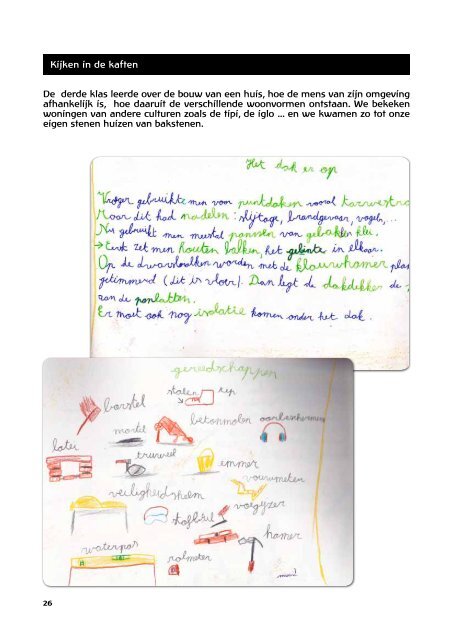 Kijken in de kaften
De derde klas leerde over de bouw van een huis, hoe de mens van zijn omgeving
afhankelijk is, hoe daaruit de verschillende woonvormen ontstaan. We bekeken
woningen van andere culturen zoals de tipi, de iglo ... en we kwamen zo tot onze
eigen stenen huizen van bakstenen.
Het dak er op
Vroeger gebruikte men voor puntdaken vooral
Maar dit had nadelen: slijtage, brandgevaar, vogels,...
Nu gebruikt men meestal pannen van gebakken klei.
→ Eerst zet men houten balken, het gebinte in elkaar.
Op de dwarsbalken worden met de klauwhamer
getimmerd (dit is vloer). Dan legt de dakdekker de
aan de panlatten.
Er moet ook nog isolatie komen onder het dak.
gereedschappen
stalen kip
borstel
betonmolen
mortel
later
truweel
emmer
vouwmeter
veiligheidshelm
stofbril
voegijzer
hamer
waterpas
rolmeter
26